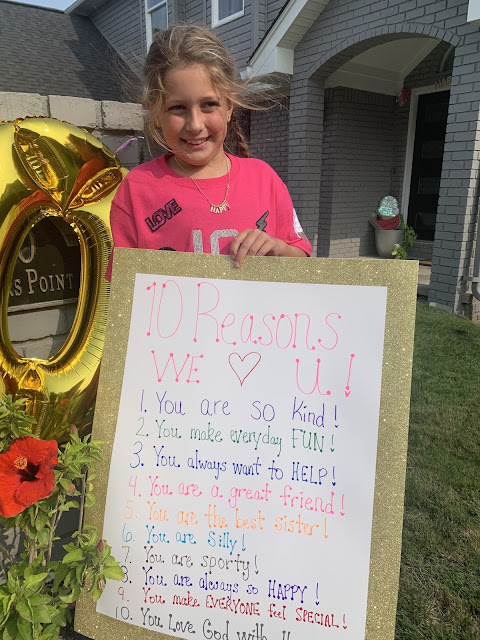 LOVE
HAPPY
10
POINT
10 Reasons
WE ♡ U!
1. You are so Kind!
2. You make everyday FUN!
3. You always want to HELP!
4. You are a great friend!
5. You are the best sister!
6. You are silly!
7. You are sporty!
8. You are always so HAPPY!
9. You make EVERYONE feel SPECIAL!
10. You Love God with